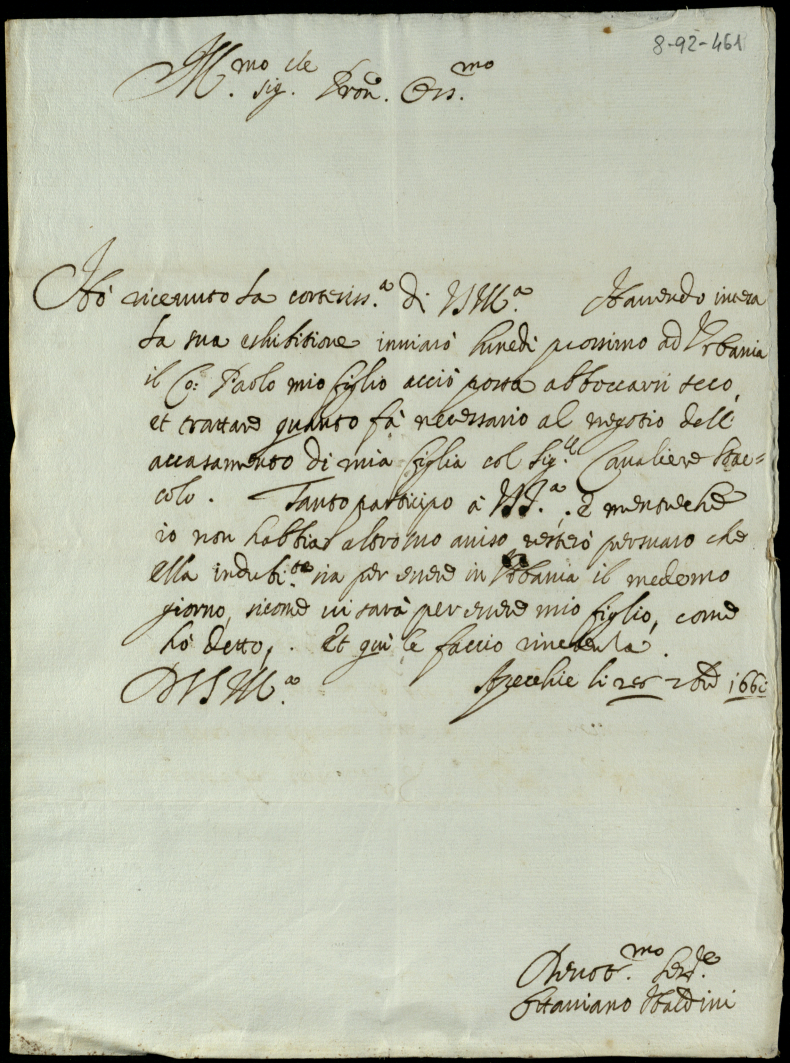 8-92-461
Ill.mo sig.re Pron. Oss.mo
Hò riceuuto la corteciss.a di VS Ill.a Hauendo intesa
la sua eshibitione inuiarò lunedì prossimo ad Vrbania
il Co: Paolo mio figlio acciò possa abboccarsi seco,
et trattare quanto fà necessario al negotio dell
accasamento di mia figlia col Sig.r Caualiere Stac=
colo. Tanto participo à VS Ill.a, e mentreche
io non habbia altro suo auiso resterò persuaso che
ella indubi.te sia per essere in Vrbania il medemo
giorno, sicome ui sarà per essere mio figlio, come
hò detto, Et quì le faccio riuerenza.
D VS Ill.a Apecchie li 28 2
Deuot.mo Ser.re
Ottauiano Vbaldini